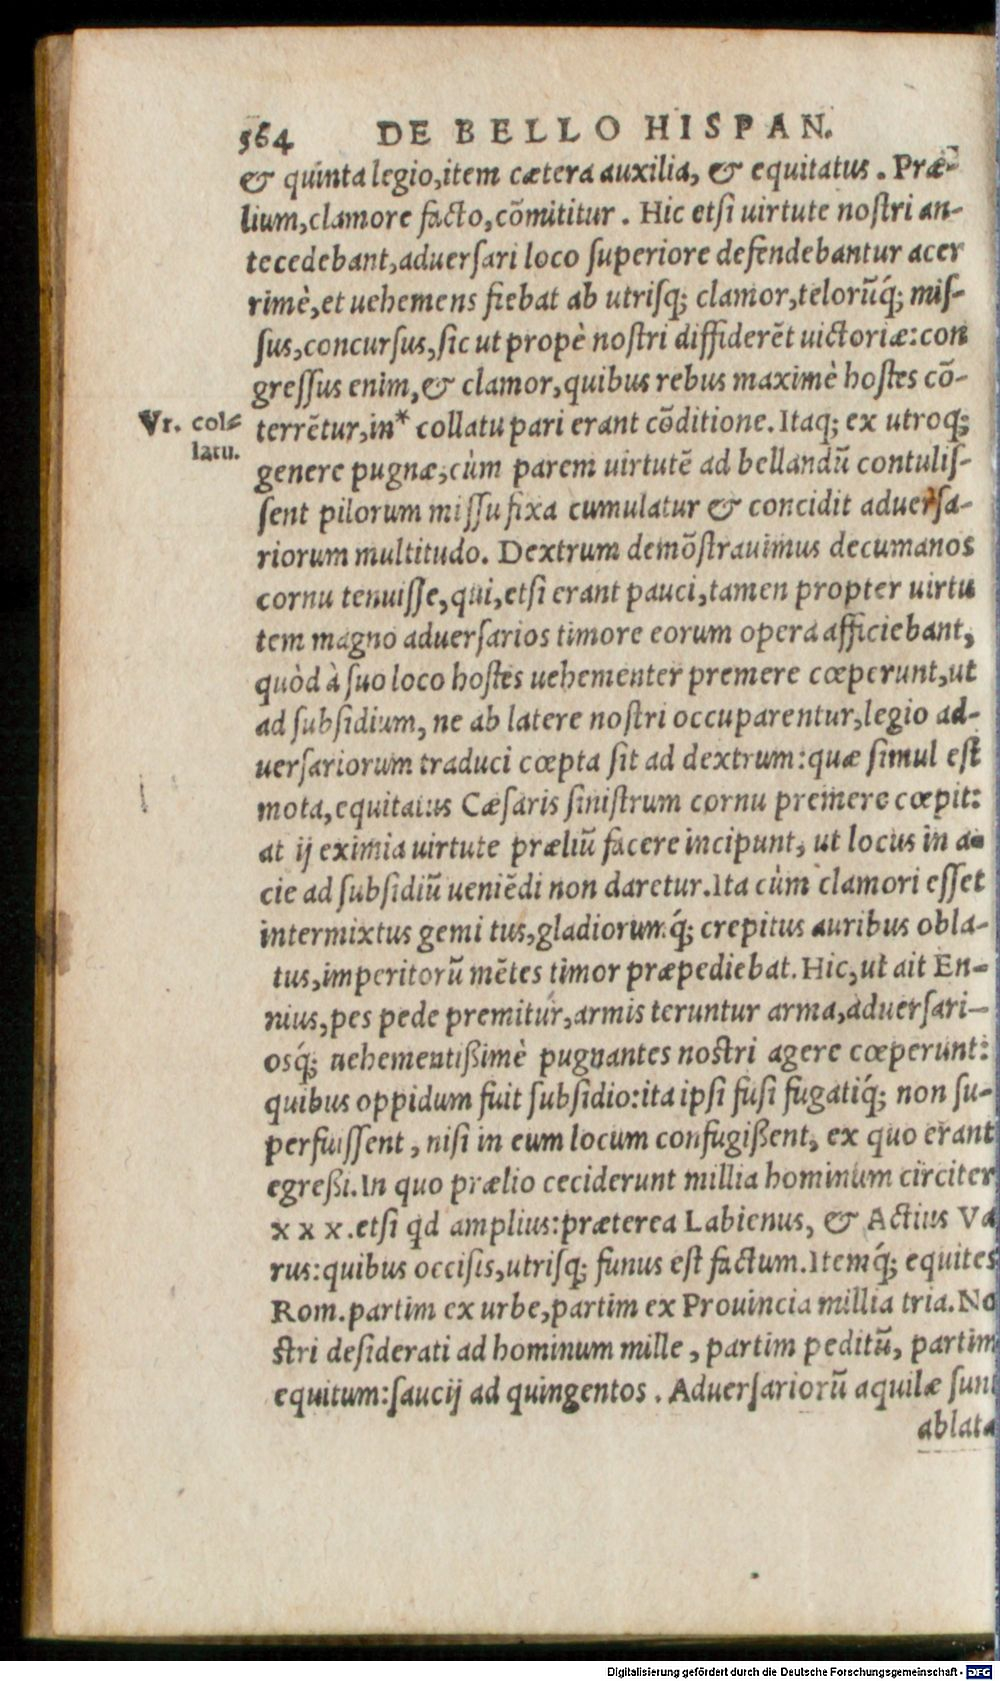 564 DE BELLO HISPAN.
& quinta legio,item cætera auxilia, & equitatus . Præ-
lium,clamore facto,cõmititur . Hic etsi uirtute nostri an-
tecedebant,aduersari loco superiore defendebantur acer
rimè,et uehemens fiebat ab utrisq; clamor,telorũq́; mis-
sus,concursus,sic ut propè nostri diffiderẽt uictoriæ:con
gressus enim,& clamor,quibus rebus maximè hostes cõ-
Vr. col-
latu.
terrẽtur,in* collatu pari erant cõditione.Itaq; ex utroq;
genere pugnæ,cùm parem uirtutẽ ad bellandũ contulis-
sent pilorum missu fixa cumulatur & concidit aduersa-
riorum multitudo. Dextrum demõstrauimus decumanos
cornu tenuisse,qui,etsi erant pauci,tamen propter uirtu
tem magno aduersarios timore eorum opera afficiebant,
quòd à suo loco hostes uehementer premere cœperunt,ut
ad subsidium, ne ab latere nostri occuparentur,legio ad-
uersariorum traduci cœpta sit ad dextrum:quæ simul est
mota,equitatus Cæsaris sinistrum cornu premere cœpit:
at ij eximia uirtute præliũ facere incipunt, ut locus in a-
cie ad subsidiũ ueniẽdi non daretur.Ita cùm clamori esset
intermixtus gemi tus,gladiorumq́; crepitus auribus obla-
tus,imperitorũ mẽtes timor præpediebat.Hic,ut ait En-
nius,pes pede premitur,armis teruntur arma,aduersari-
osq́; uehementißimè pugnantes nostri agere cœperunt:
quibus oppidum fuit subsidio:ita ipsi fusi fugatiq́; non su-
perfuissent , nisi in eum locum confugißent, ex quo erant
egreßi.In quo prælio ceciderunt millia hominum circiter
x x x .etsi qd amplius:præterea Labienus, & Actius Va
rus:quibus occisis,utrisq; funus est factum.Itemq́; equites
Rom.partim ex urbe,partim ex Prouincia millia tria.No
stri desiderati ad hominum mille , partim peditũ, partim
equitum:saucij ad quingentos . Aduersariorũ aquilæ sunt
ablata
Digitalisierung gefördert durch die Deutsche Forschungsgemeinschaft - DFG